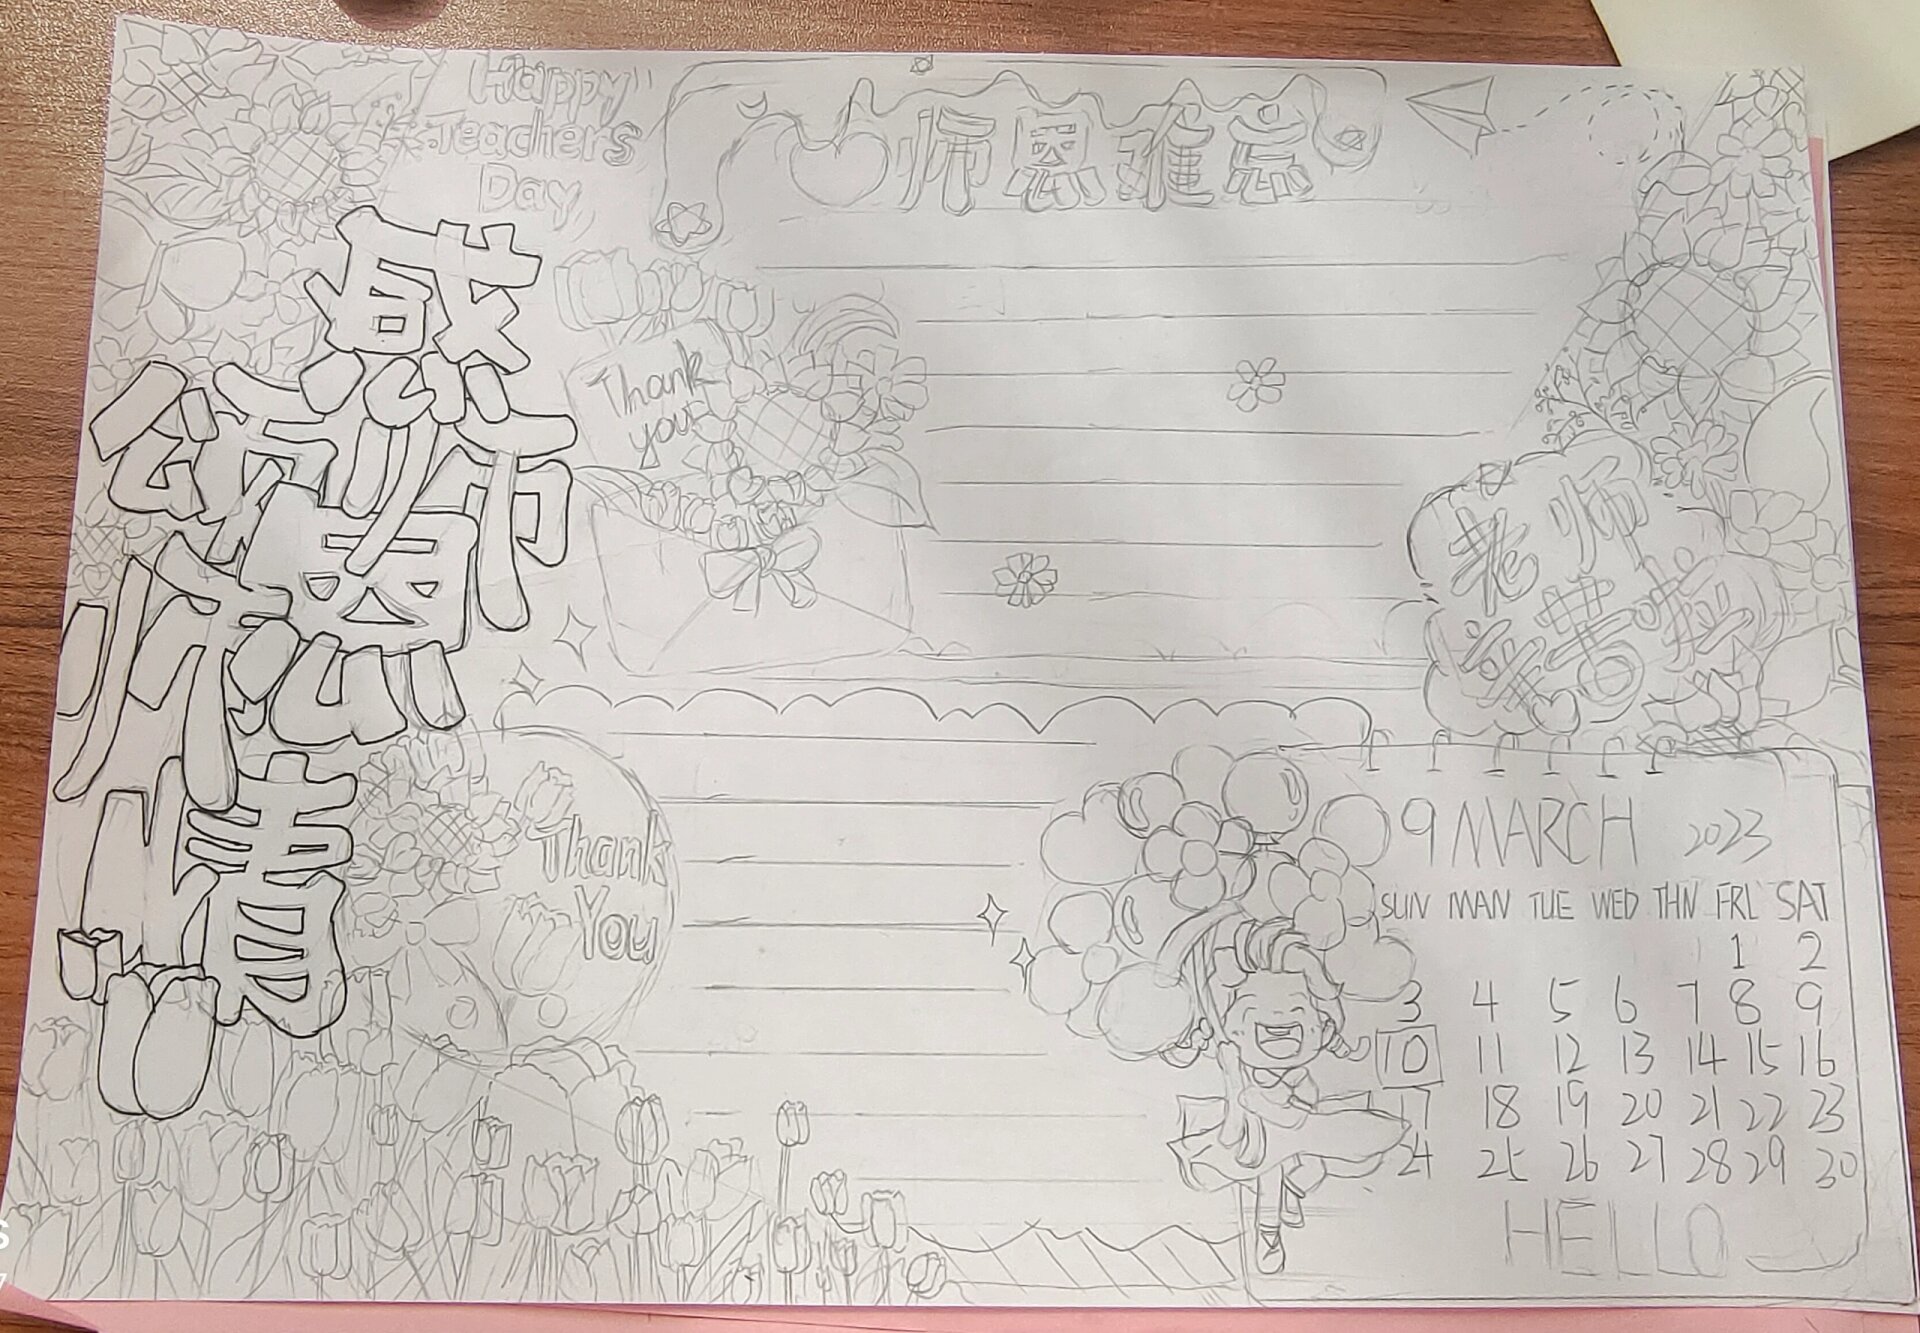 Happy
Teachers
Day
师恩难忘
感师恩
颂师情
Thank
you
老师
辛苦啦
Thank
You
9 MARCH 2023
SUN MAN TUE WED THN FRI SAT
1 2
3 4 5 6 7 8 9
10 11 12 13 14 15 16
17 18 19 20 21 22 23
24 25 26 27 28 29 30
HELLO